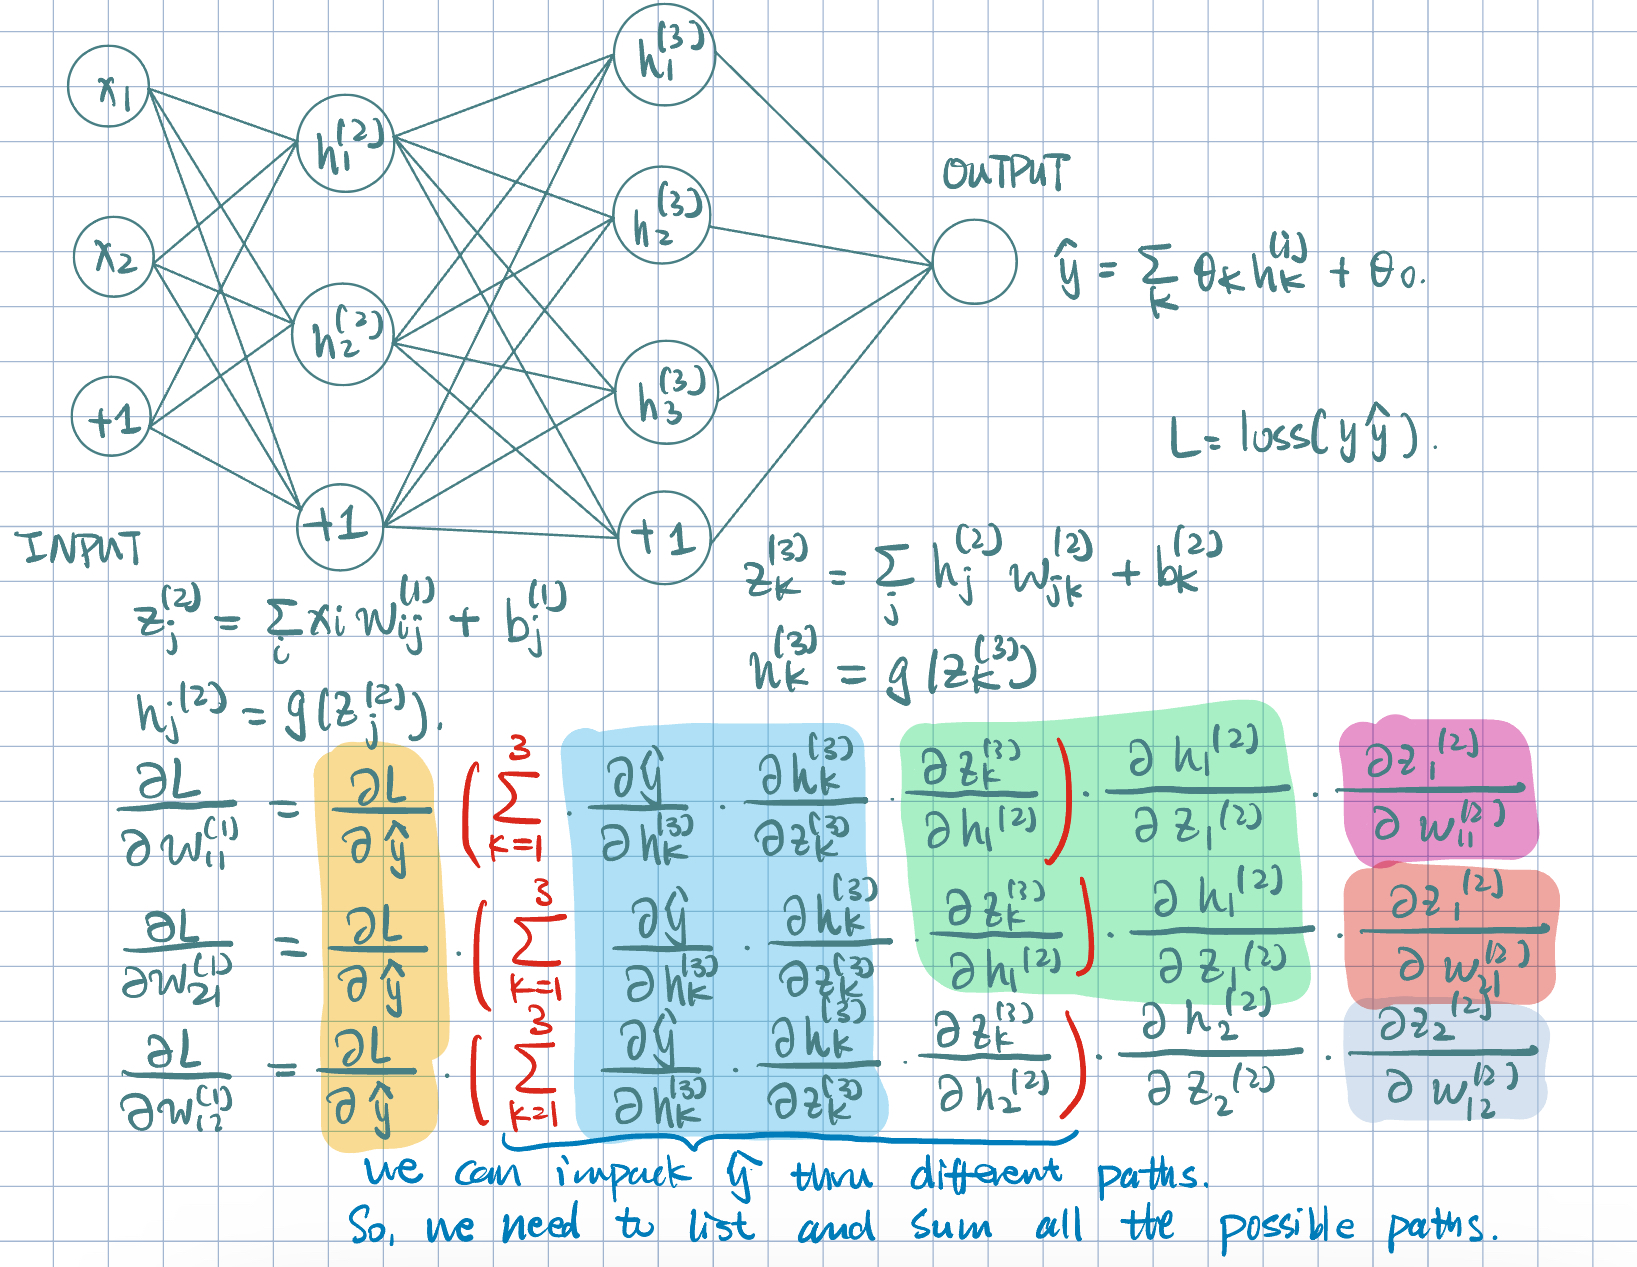 x₁
h₁⁽²⁾
h₁⁽³⁾
x₂
h₂⁽²⁾
h₂⁽³⁾
OUTPUT
ŷ = Σ_k θ_k h_k⁽ⁱ⁾ + θ₀.
+1
h₃⁽³⁾
L = loss(y ŷ).
+1
+1
INPUT
z_j⁽²⁾ = Σ_i x_i w_ij⁽¹⁾ + b_j⁽¹⁾
z_k⁽³⁾ = Σ_j h_j⁽²⁾ w_jk⁽²⁾ + b_k⁽²⁾
h_j⁽²⁾ = g(z_j⁽²⁾).
h_k⁽³⁾ = g(z_k⁽³⁾)
∂L/∂w₁₁⁽¹⁾ = ∂L/∂ŷ (Σ_{k=1}^{3} · ∂ŷ/∂h_k⁽³⁾ · ∂h_k⁽³⁾/∂z_k⁽³⁾ · ∂z_k⁽³⁾/∂h₁⁽²⁾) · ∂h₁⁽²⁾/∂z₁⁽²⁾ · ∂z₁⁽²⁾/∂w₁₁
∂L/∂w₂₁⁽¹⁾ = ∂L/∂ŷ · (Σ_{k=1}^{3} ∂ŷ/∂h_k⁽³⁾ · ∂h_k⁽³⁾/∂z_k⁽³⁾ · ∂z_k⁽³⁾/∂h₁⁽²⁾) · ∂h₁⁽²⁾/∂z₁⁽²⁾ · ∂z₁⁽²⁾/∂w₂₁
∂L/∂w₁₂⁽¹⁾ = ∂L/∂ŷ · (Σ_{k=1}^{3} ∂ŷ/∂h_k⁽³⁾ · ∂h_k⁽³⁾/∂z_k⁽³⁾ · ∂z_k⁽³⁾/∂h₂⁽²⁾) · ∂h₂⁽²⁾/∂z₂⁽²⁾ · ∂z₂⁽²⁾/∂w₁₂
we can impack ŷ thru different paths.
So, we need to list and sum all the possible paths.